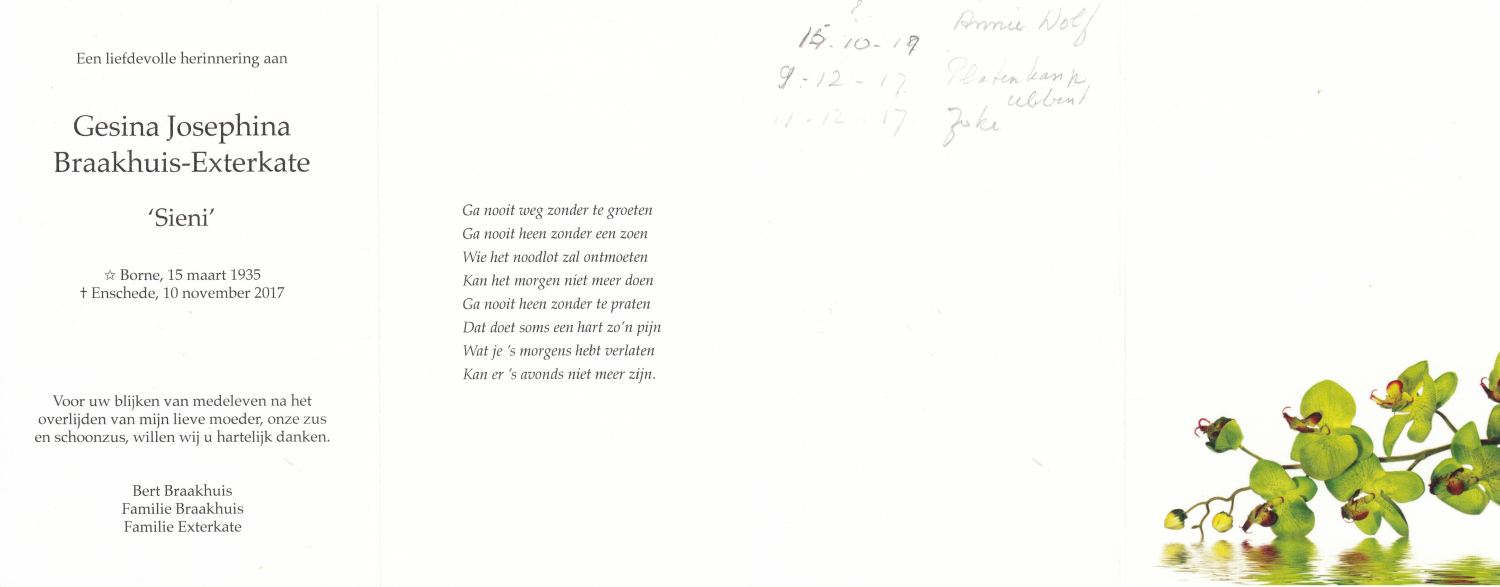 Een liefdevolle herinnering aan
Gesina Josephina
Braakhuis-Exterkate
‘Sieni’
☆ Borne, 15 maart 1935
† Enschede, 10 november 2017
Voor uw blijken van medeleven na het
overlijden van mijn lieve moeder, onze zus
en schoonzus, willen wij u hartelijk danken.
Bert Braakhuis
Familie Braakhuis
Familie Exterkate
Ga nooit weg zonder te groeten
Ga nooit heen zonder een zoen
Wie het noodlot zal ontmoeten
Kan het morgen niet meer doen
Ga nooit heen zonder te praten
Dat doet soms een hart zo’n pijn
Wat je ’s morgens hebt verlaten
Kan er ’s avonds niet meer zijn.
?
Annie Wolf
9-12-17 Platenkamp
11-12-17